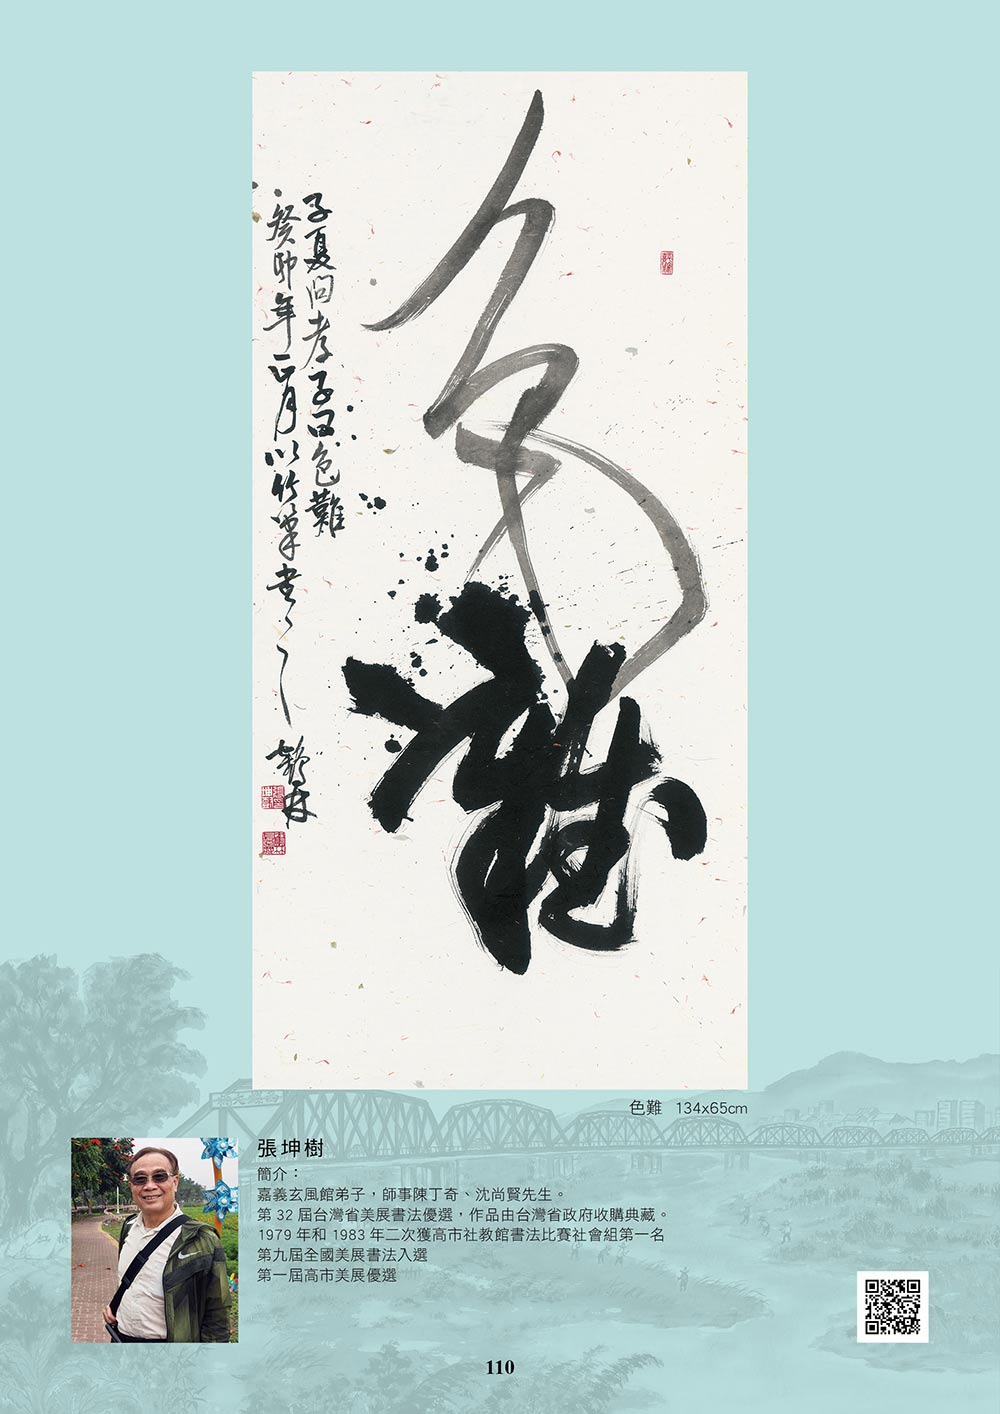 色難
子夏問孝子曰色難
癸卯年正月以竹筆書之
鶴林
色難 134x65cm
張坤樹
簡介：
嘉義玄風館弟子，師事陳丁奇、沈尚賢先生。
第 32 屆台灣省美展書法優選，作品由台灣省政府收購典藏。
1979 年和 1983 年二次獲高市社教館書法比賽社會組第一名
第九屆全國美展書法入選
第一屆高市美展優選
110